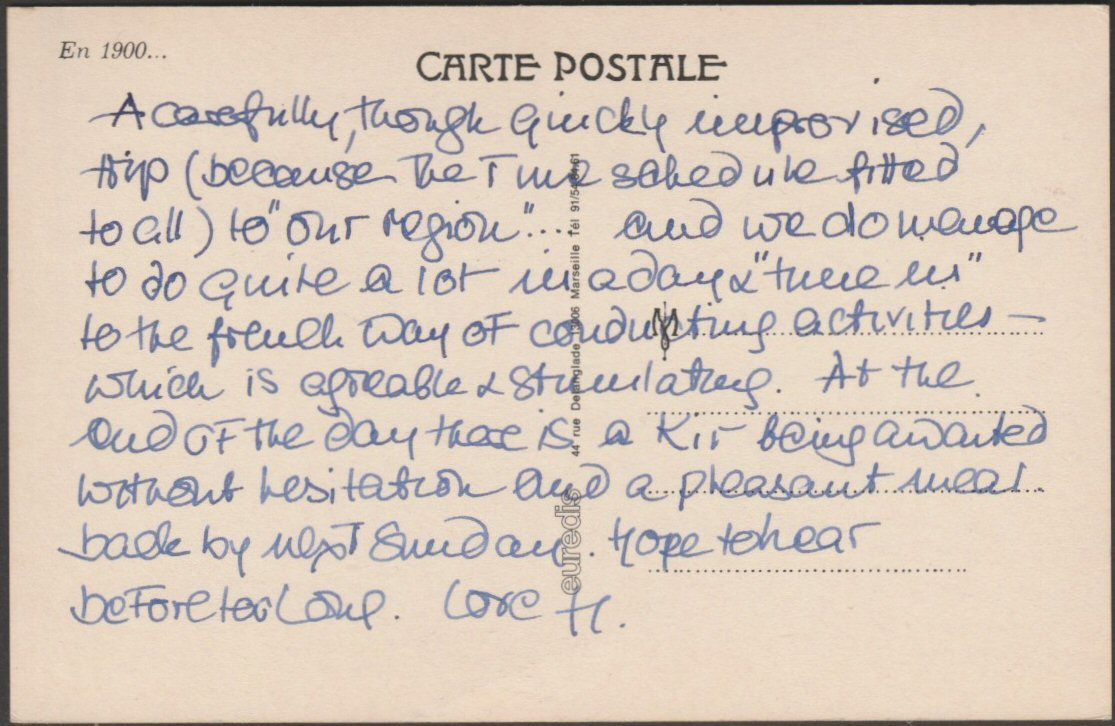 En 1900...
CARTE POSTALE
A carefully, though quickly improvised,
trip (because the Time schedule fitted
to all) to "our region".... and we do manage
to do quite a lot in a day & "tune in"
to the french way of conducting activities —
which is agreable & stimulating. At the
end of the day there is a Kir being awaited
without hesitation and a pleasant meal.
back by next Sunday. Hope to hear
before too long. Love H.
44 rue Marseille Tél
euredis